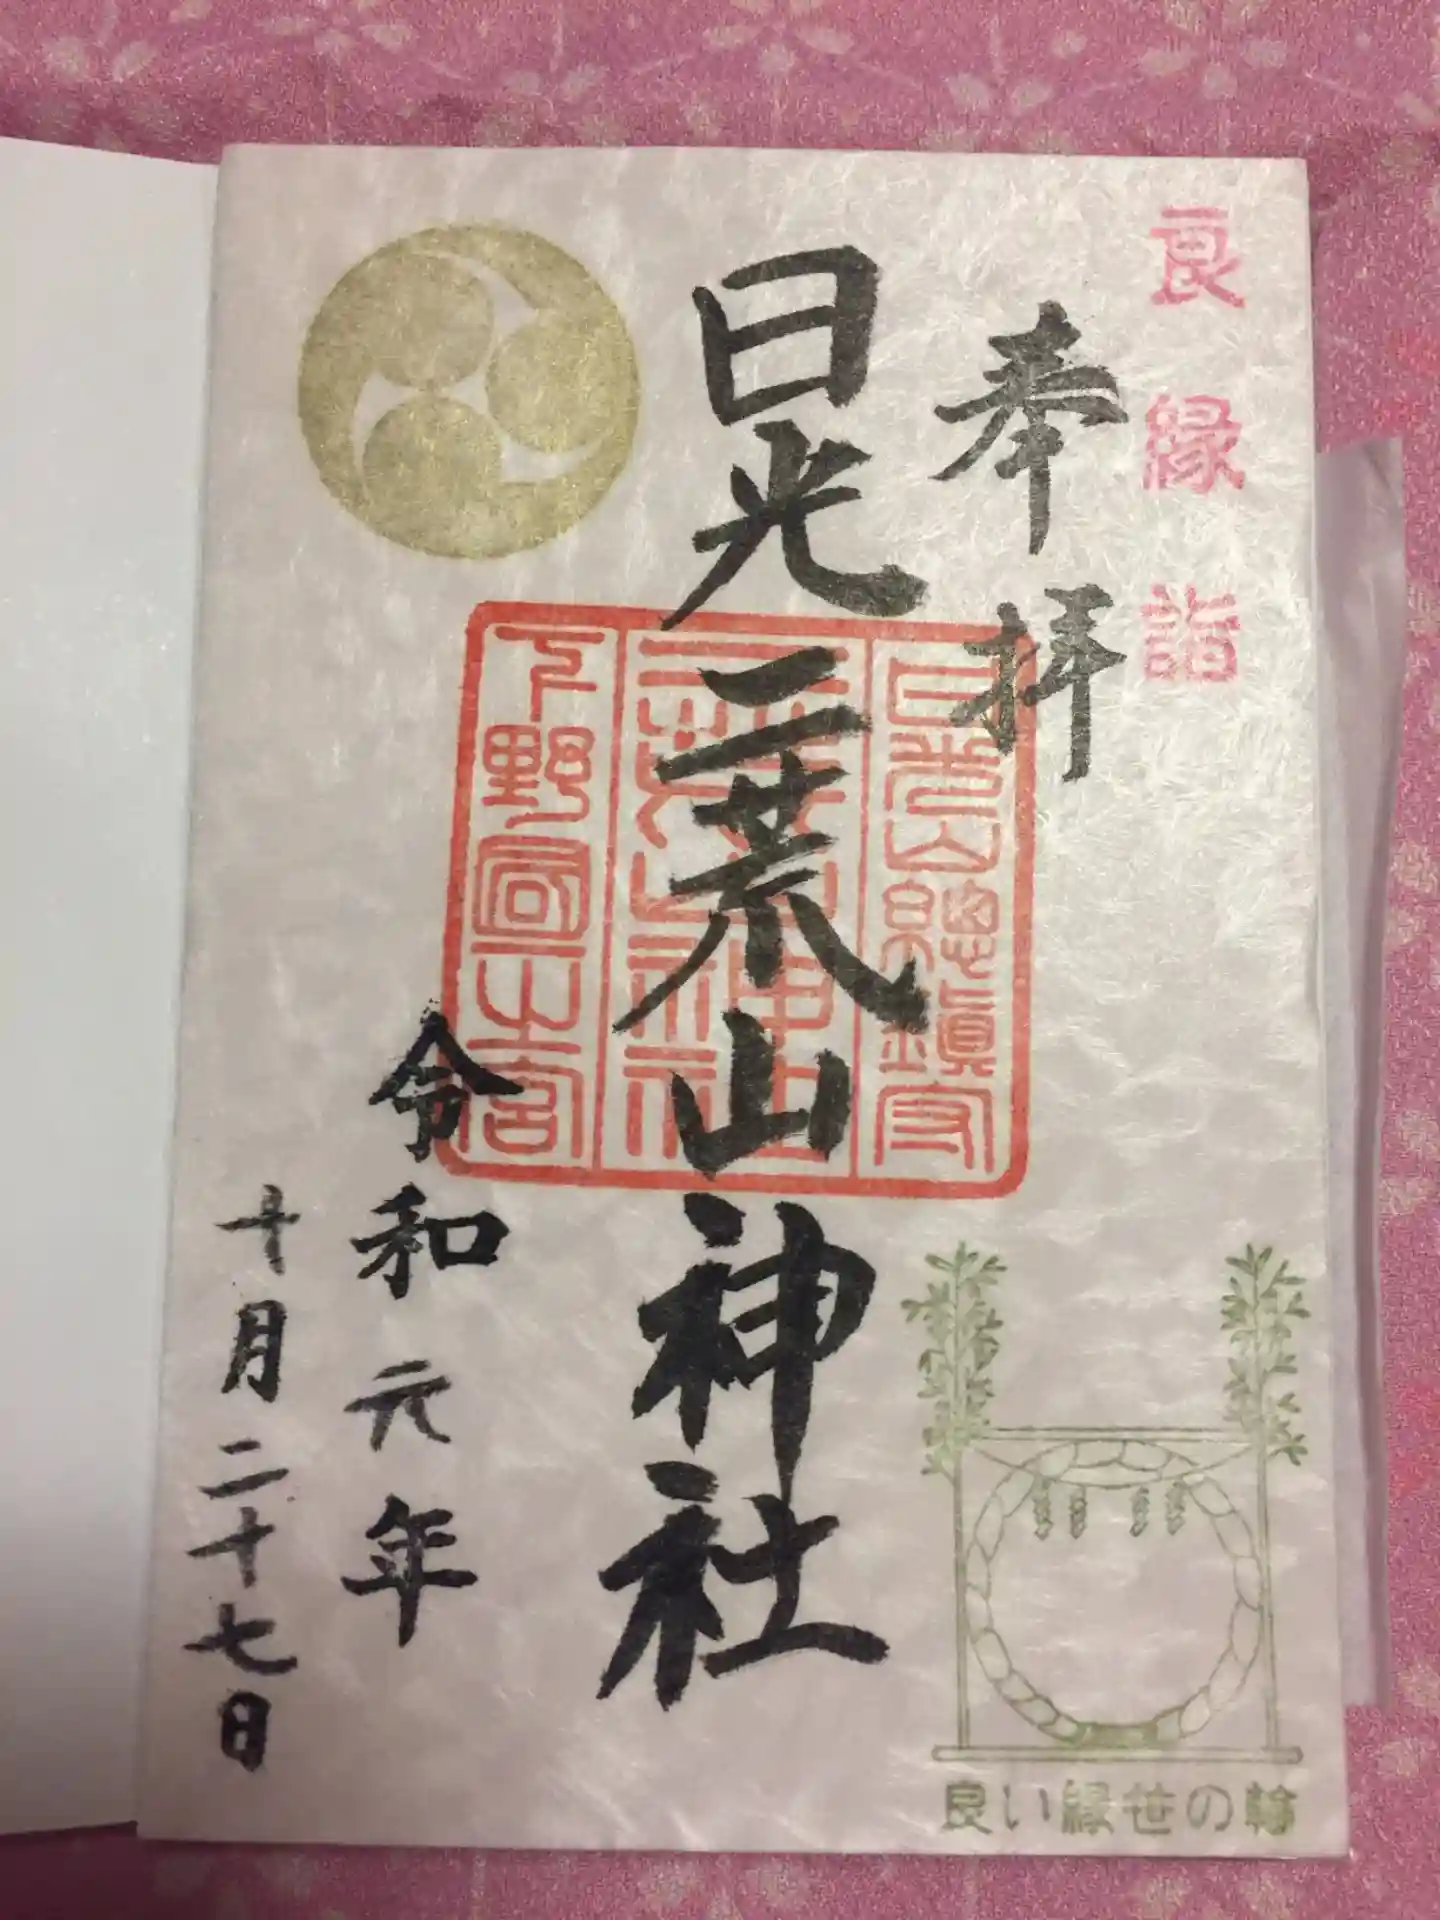 良縁詣
奉拝
日光二荒山神社
令和元年
十月二十七日
日光山總鎮守
二荒山神社
良い縁笹の輪